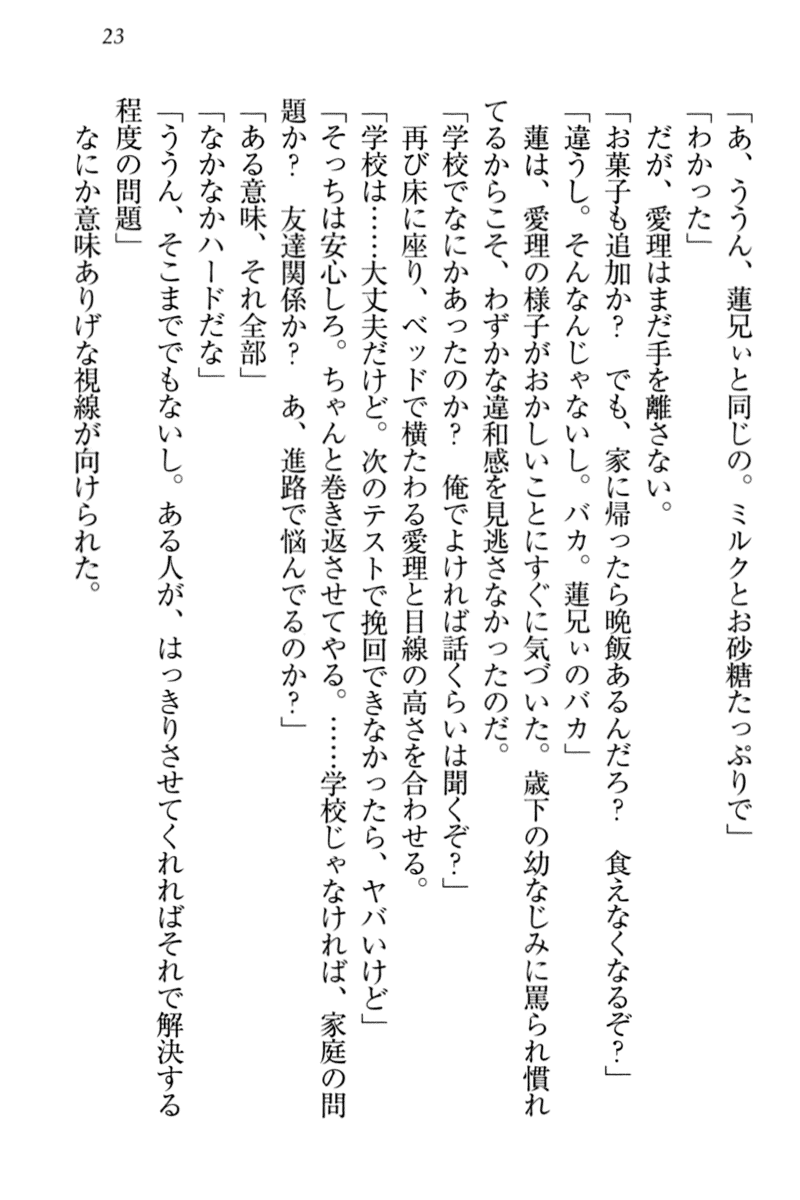 23
「あ、ううん、蓮兄ぃと同じの。ミルクとお砂糖たっぷりで」
「わかった」
　だが、愛理はまだ手を離さない。
「お菓子も追加か？　でも、家に帰ったら晩飯あるんだろ？　食えなくなるぞ？」
「違うし。そんなんじゃないし。バカ。蓮兄ぃのバカ」
　蓮は、愛理の様子がおかしいことにすぐに気づいた。歳下の幼なじみに罵られ慣れ
てるからこそ、わずかな違和感を見逃さなかったのだ。
「学校でなにかあったのか？　俺でよければ話くらいは聞くぞ？」
　再び床に座り、ベッドで横たわる愛理と目線の高さを合わせる。
「学校は……大丈夫だけど。次のテストで挽回できなかったら、ヤバいけど」
「そっちは安心しろ。ちゃんと巻き返させてやる。……学校じゃなければ、家庭の問
題か？　友達関係か？　あ、進路で悩んでるのか？」
「ある意味、それ全部」
「なかなかハードだな」
「ううん、そこまででもないし。ある人が、はっきりさせてくれればそれで解決する
程度の問題」
　なにか意味ありげな視線が向けられた。